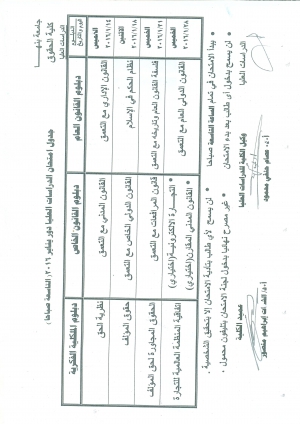 جامعة بنها
كلية الحقوق
الدراسات العليا
جدول امتحان الدراسات العليا دور يناير ٢٠١٦ ( التاسعة صباحا )
اليوم والتاريخ
دبلوم القانون العام
دبلوم القانون الخاص
دبلوم الملكية الفكرية
الخميس ٢٠١٦/١/١٤
القانون الإداري مع التعمق
القانون المدني مع التعمق
نظرية الحق
الاثنين ٢٠١٦/١/١٨
نظام الحكم في الإسلام
القانون الدولي الخاص مع التعمق
حقوق المؤلف
الخميس ٢٠١٦/١/٢١
فلسفة القانون العام وتاريخه مع التعمق
قانون المرافعات مع التعمق
الحقوق المجاورة لحق المؤلف
الخميس ٢٠١٦/١/٢٨
القانون الدولي العام مع التعمق
التجارة الالكترونية (اختياري)
القانون المدني المقارن (اختياري)
اتفاقية المنظمة العالمية للتجارة
يبدأ الامتحان في تمام الساعة التاسعة صباحا .
لن يسمح بدخول أي طالب بعد بدء الامتحان
لن يسمح لأي طالب بتأدية الامتحان إلا بتحقيق الشخصية .
غير مصرح نهائيا بدخول لجنة الامتحان بتليفون محمول .
الدراسات العليا
وكيل الكلية للدراسات العليا
أ.د/ عصام حنفي محمود
عميد الكلية
أ.د/ السيد أحمد إبراهيم منصور